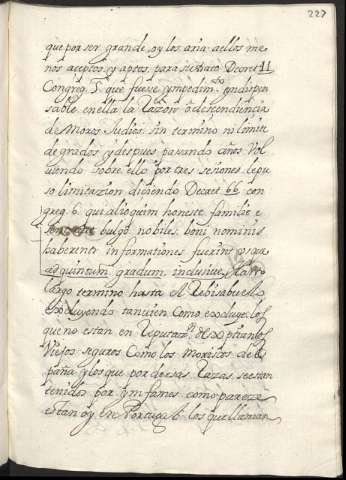 227
que por ser grande, oy los aria aellos me
nos aceptos y aptos, para su stato Decret 11
Congreg. 5. que fuese ympedim.to yndispen
sable enella la Razon o descendencia
de Moros Judios sin termino ni limite
de grados y despues pasando años. Vol
uiendo sobre ello por tres sesiones le pu
so limitazion diziendo Decret 66 con
greg. 6. qui alioquim honeste familie e
bulgo nobiles, boni nominis
haberent informationes fuerint
ad quintum gradum inclusiue,
largo termino hasta el Rebisabuelo
excluyendo tanuien como excluye los
que no estan en Reputaz.on de xptianos
Viejos seguros Como los Moriscos de es
paña y los que por diversas Raizas se estan
tenidos por ymfames como pareze
estan oy en Portugal los que llaman